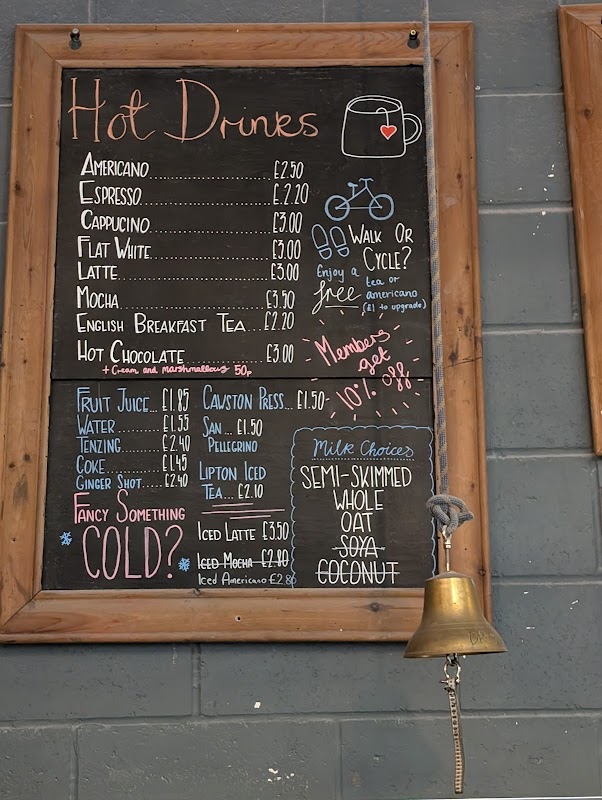 Hot Drinks
Americano.................£2.50
Espresso..................£.2.20
Cappucino.................£3.00
Flat White................£3.00
Latte.....................£3.00
Mocha.....................£3.50
English Breakfast Tea...£2.20
Hot Chocolate............£3.00
+ Cream and marshmallows 50p
Walk Or
Cycle?
Enjoy a
free
tea or
americano
(£1 to upgrade)
Members
get
10% off
Fruit Juice...£1.85
Water.........£1.55
Tenzing.......£2.40
Coke..........£1.45
Ginger Shot.....£2.40
Cawston Press...£1.50
San...£1.50
Pellegrino
Lipton Iced
Tea...£2.10
Fancy Something
COLD?
Iced Latte £3.50
Iced Mocha £2.80
Iced Americano £2.80
Milk Choices
SEMI-SKIMMED
WHOLE
OAT
SOYA
COCONUT